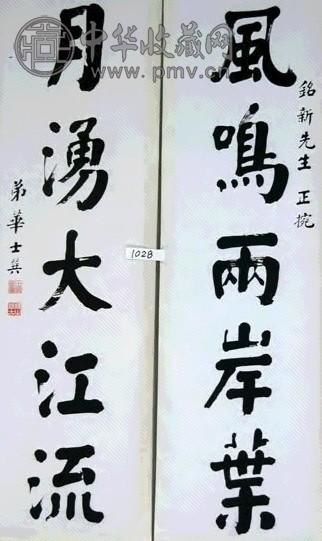 中华收藏网
www.pmv.cn
銘新先生 正捥
風鳴兩岸葉
月湧大江流
弟華士巽
1028